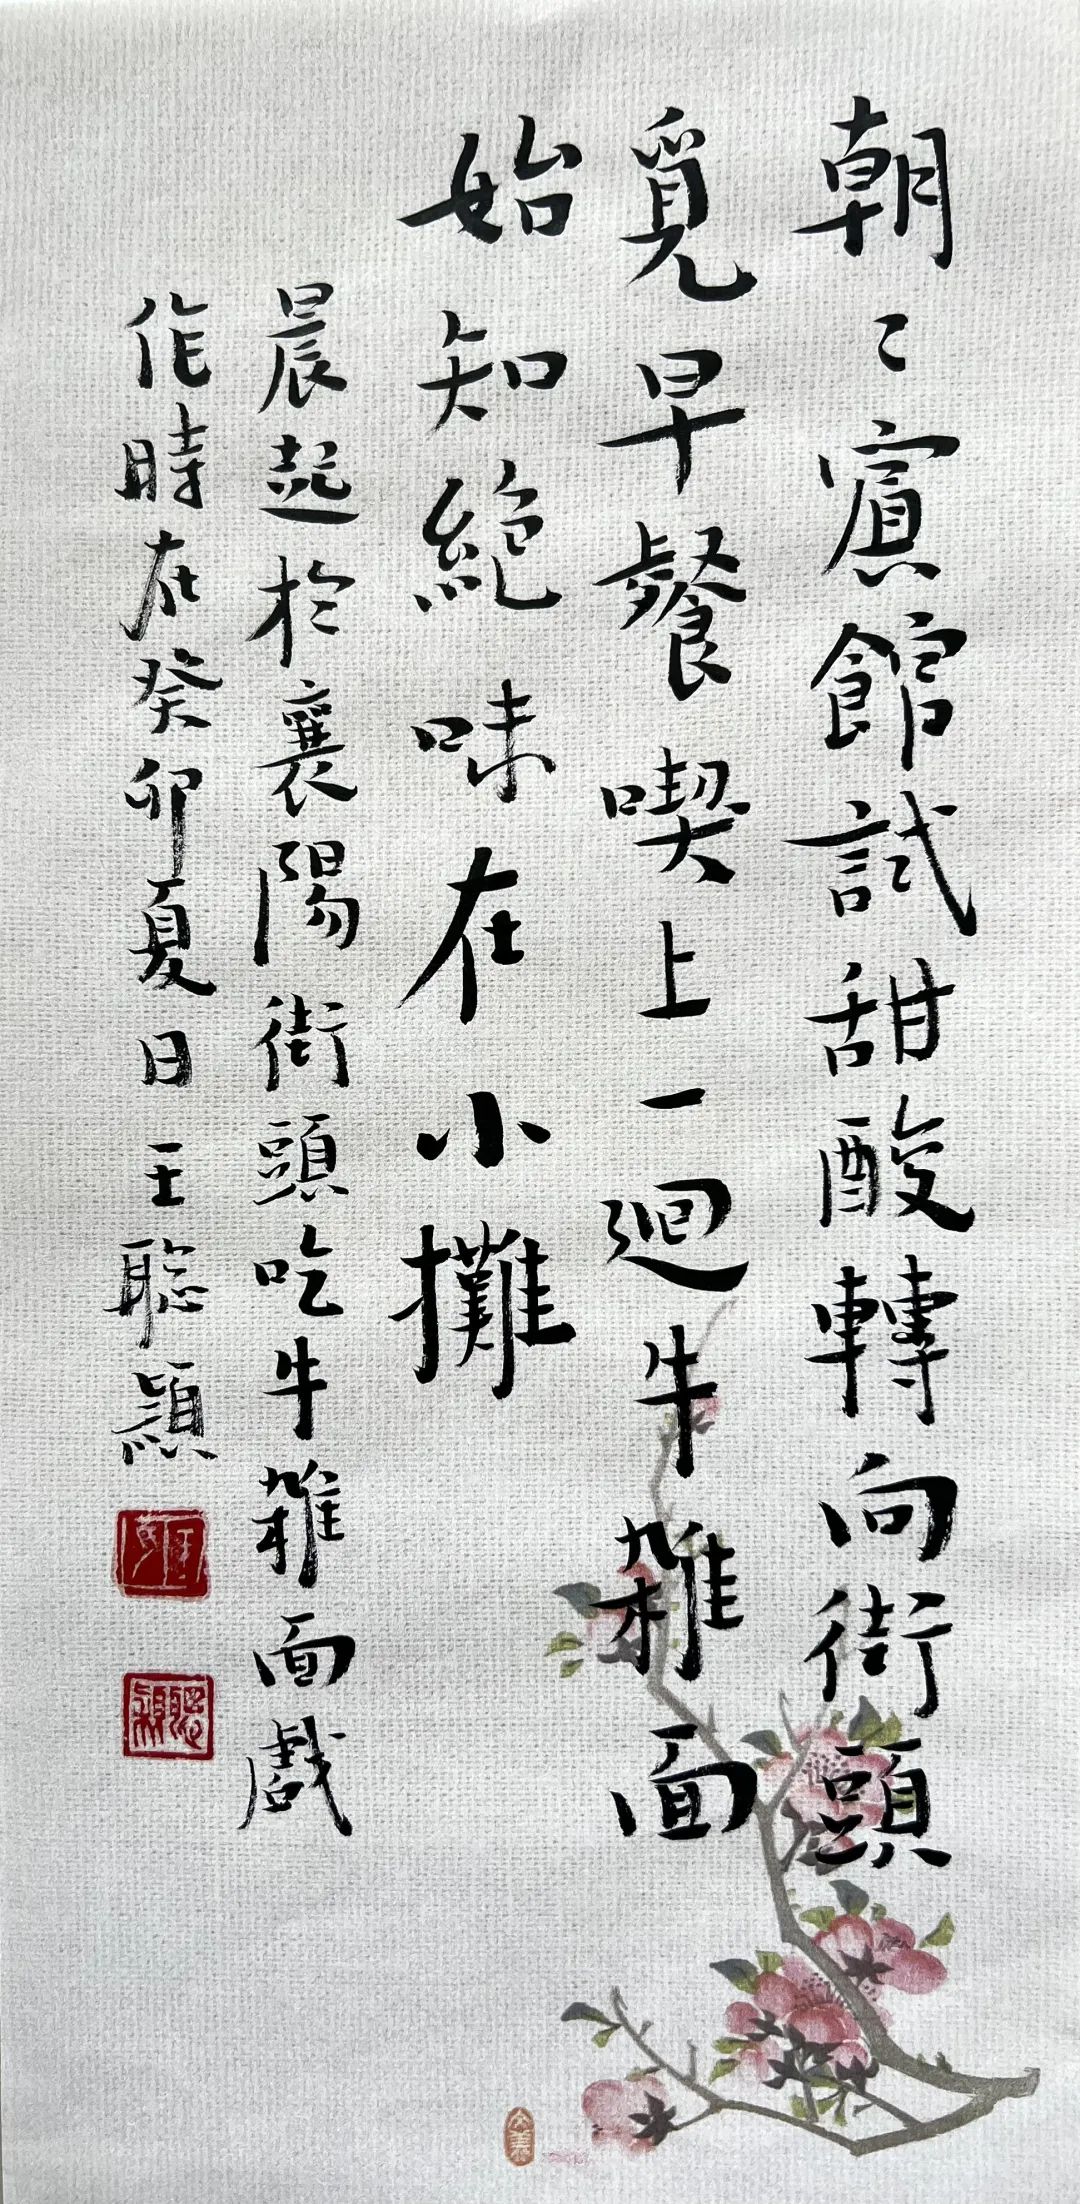 朝〻賔館試甜酸轉向街頭
覓早餐喫上一迴牛雜面
始知絕味在小攤
晨起於襄陽街頭吃牛雜面戲
作時在癸卯夏日王聡穎